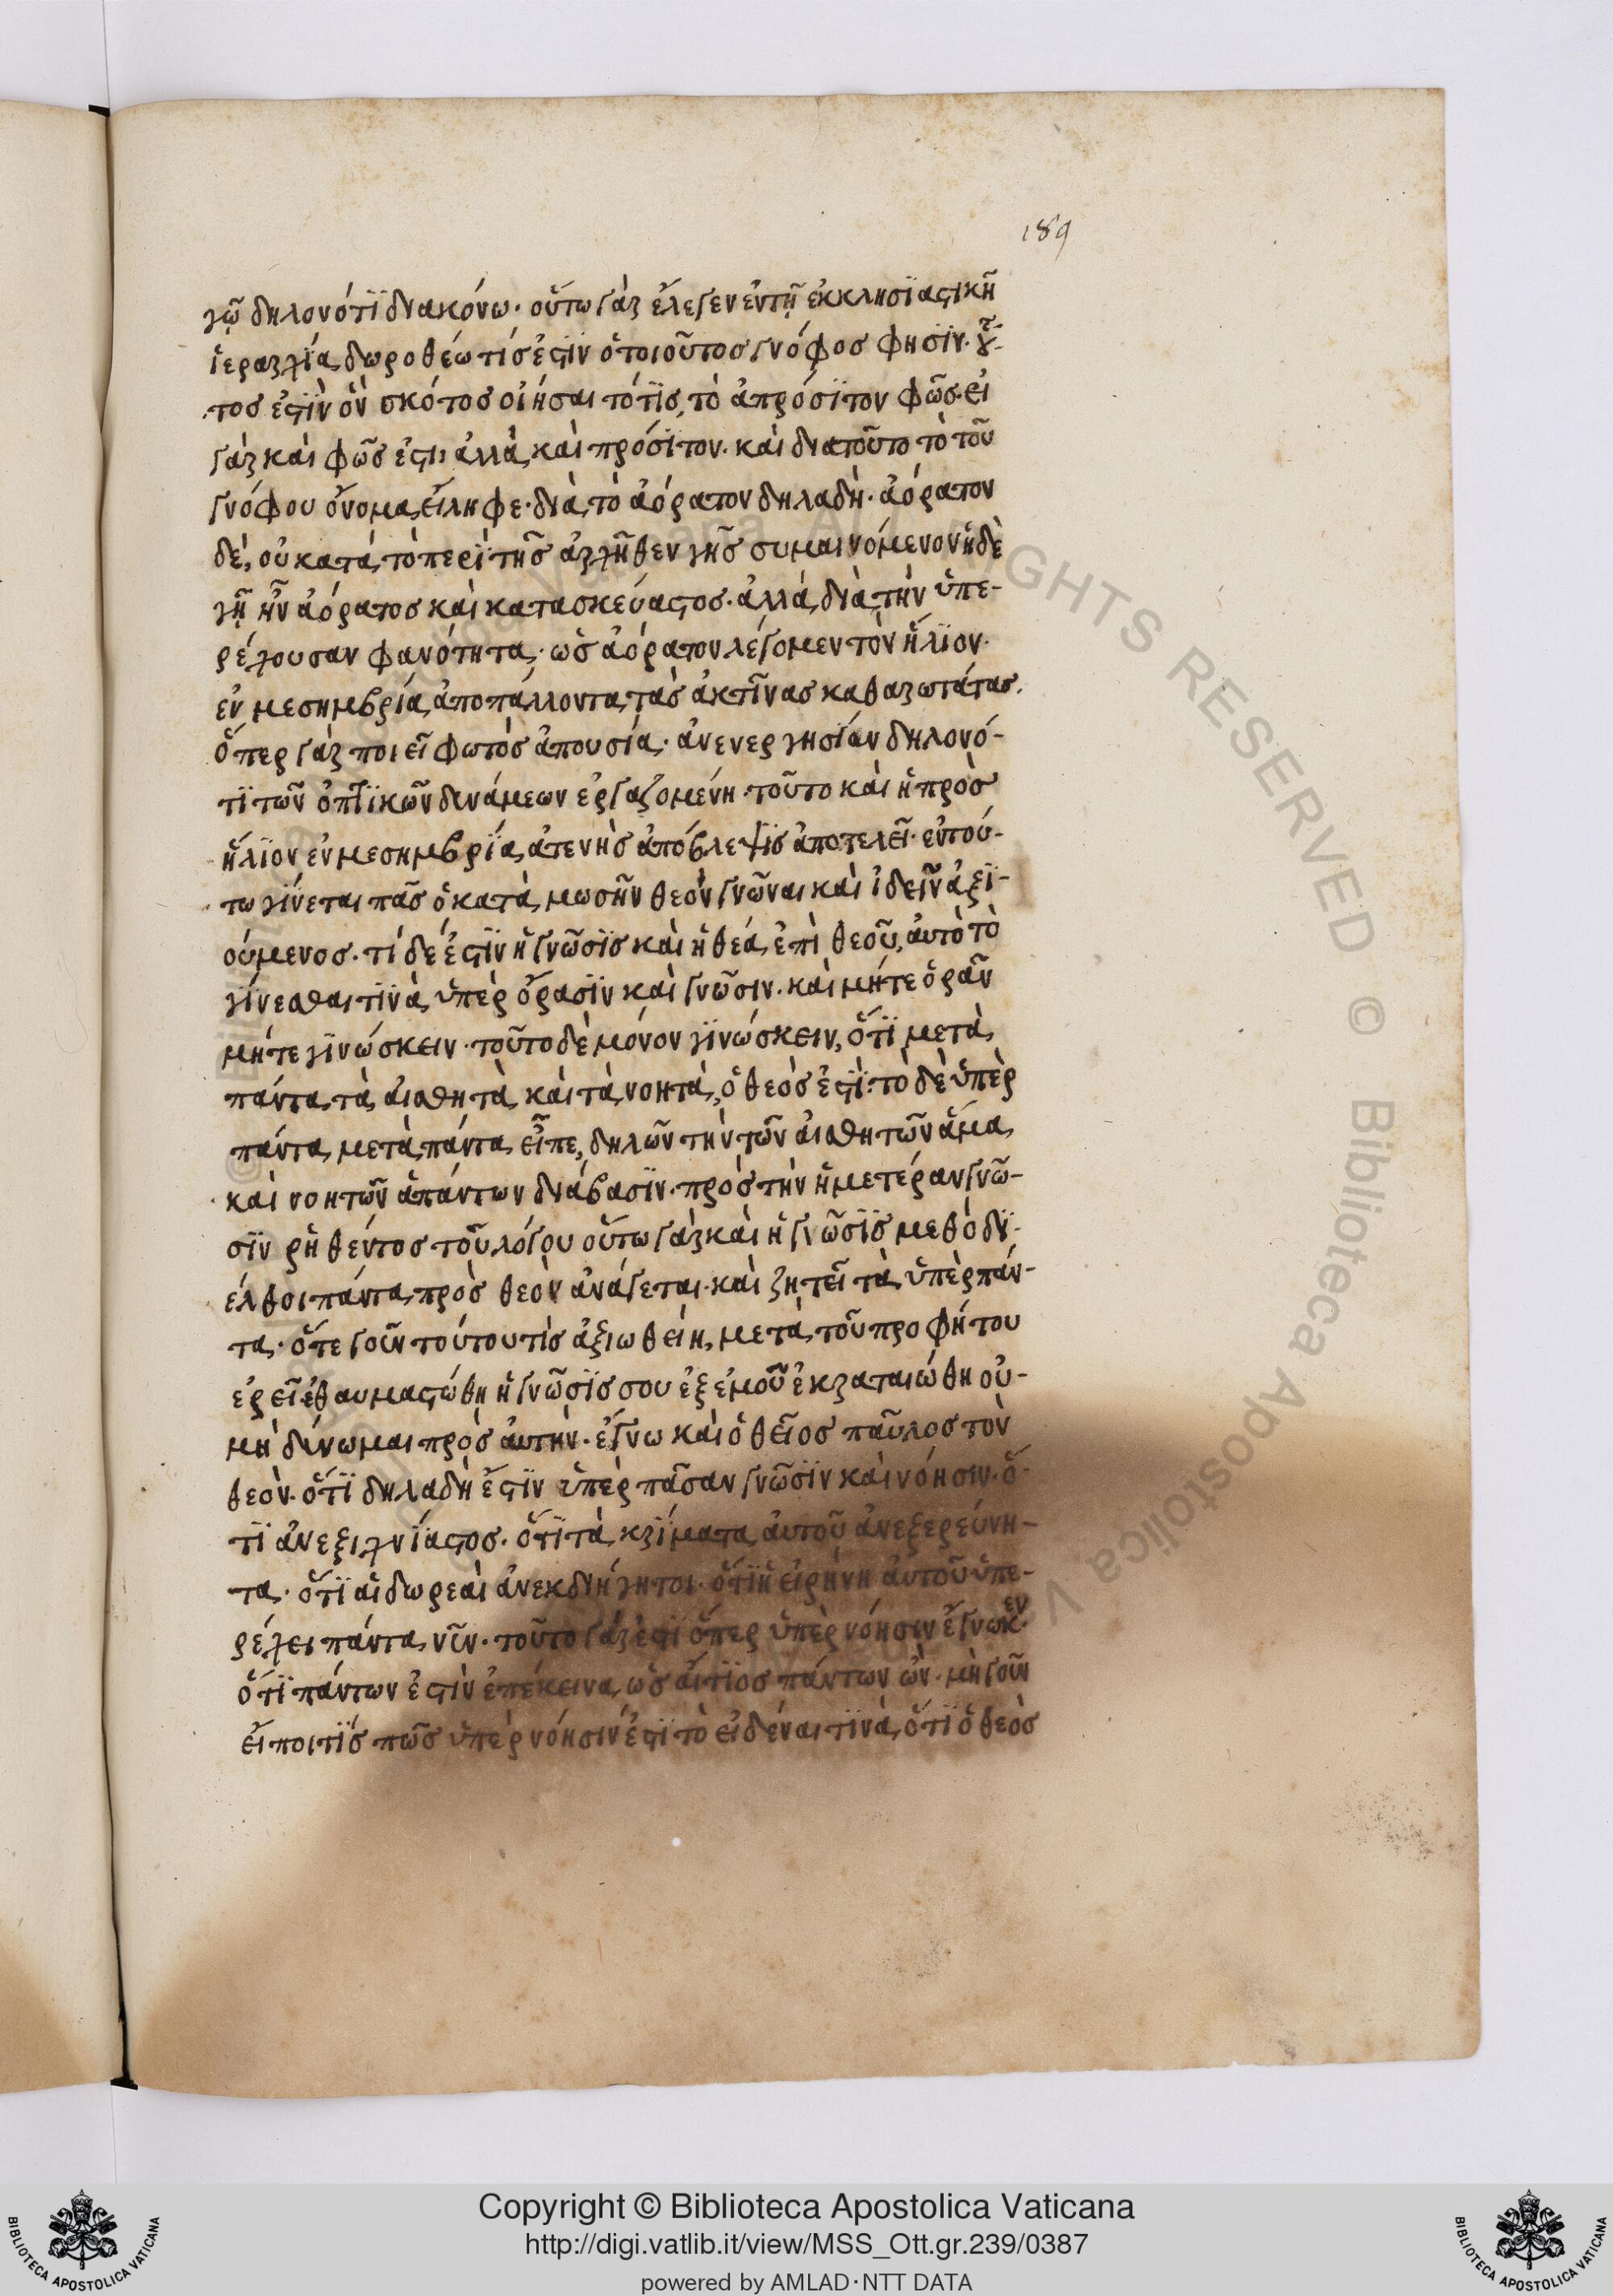 189
γῷ δηλονότϊ διακόνω· οὕτω γὰρ ἔλεγεν ἐν τῇ ἐκκλησϊαστικῆ
ἱεραρχίᾳ, δωροθέω τίς ἐστϊν ὁ τοιοῦτος γνόφος φησϊν· οὗ-
τος ἐστϊν ὃν σκότος οἰήσαιτό τϊς, τὸ ἀπρόσϊτον φῶς· εἰ
γὰρ καὶ φῶς ἐστιν ἀλλὰ καὶ πρόσϊτον· καὶ διατοῦτο τὸ τοῦ
γνόφου ὄνομα εἴληφε· διὰ τὸ ἀόρατον δηλαδή· ἀόρατον
δὲ, οὐ κατὰ τὸ περὶ τῆς ἀρχῆθεν γῆς συμαινόμενον ἡ δὲ
γῆ ἦν ἀόρατος καὶ κατασκεύαστος· ἀλλὰ διὰ τὴν ὑπε-
ρέχουσαν φανότητα· ὡς ἀόρατον λέγομεν τὸν ἥλϊον·
ἐν μεσημβρία ἀποπάλλοντα τὰς ἀκτῖνας καθαρωτάτας.
ὅπερ γὰρ ποιεῖ φωτὸς ἀπουσία· ἀνενεργησίαν δηλονό-
τϊ τῶν ὀπτϊκῶν δυνάμεων ἐργαζομένη· τοῦτο καὶ ἡ πρὸς
ἥλϊον ἐν μεσημβρία ἀτενὴς ἀπόβλεψϊς ἀποτελεῖ· ἐν τού-
τω γίνεται πᾶς ὁ κατὰ μωσῆν θεὸν γνῶναι καὶ ἰδεῖν ἀξϊ-
ούμενος· τί δέ ἐστϊν ἡ γνῶσϊς καὶ ἡ θέα ἐπὶ θεοῦ, αὐτὸ τὸ
γίνεσθαι τϊνὰ ὑπὲρ ὅρασϊν καὶ γνῶσιν· καὶ μήτε ὁρᾶν
μήτε γϊνώσκειν· τοῦτο δὲ μόνον γϊνώσκειν, ὅτϊ μετὰ
πάντα τὰ αἰσθητὰ καὶ τὰ νοητὰ, ὁ θεός ἐστϊ· τὸ δὲ ὑπὲρ
πάντα μετὰ πάντα εἶπε, δηλῶν τὴν τῶν αἰσθητῶν ἅμα
καὶ νοητῶν ἁπάντων διάβασϊν· πρὸς τὴν ἡμετέραν γνῶ-
σϊν ῥηθέντος τοῦ λόγου οὕτω γὰρ καὶ ἡ γνῶσϊς μεθὸ δϊ-
έλθοι πάντα πρὸς θεὸν ἀνάγεται· καὶ ζητεῖ τὰ ὑπὲρ πάν-
τα· ὅτε γοῦν τούτου τὶς ἀξιωθείη, μετὰ τοῦ προφήτου
ἐρεῖ ἐθαυμαστώθη ἡ γνῶσϊς σου ἐξ ἐμοῦ ἐκραταιώθη οὐ-
μὴ δύνωμαι πρὸς αὐτήν· ἔγνω καὶ ὁ θεῖος παῦλος τὸν
θεὸν· ὅτϊ δηλαδὴ ἐστϊν ὑπὲρ πᾶσαν γνῶσϊν καὶ νόησιν· ὅ-
τϊ ἀνεξιχνίαστος· ὅτϊ τὰ κρίματα αὐτοῦ ἀνεξερεύνη-
τα· ὅτϊ αἱ δωρεαὶ ἀνεκδιήγητοι· ὅτϊ ἡ εἰρήνη αὐτοῦ ὑπε-
ρέχει πάντα νοῦν· τοῦτο γάρ ἐστϊ ὅπερ ὑπὲρ νόησιν ἔγνωκεν·
ὅτϊ πάντων ἐστὶν ἐπέκεινα ὡς αἴτϊος πάντων ὤν· μὴ γοῦν
εἴποι τϊς πῶς ὑπὲρ νόησιν ἐστϊ τὸ εἰδέναι τϊνὰ, ὅτϊ ὁ θεὸς
Copyright © Biblioteca Apostolica Vaticana
http://digi.vatlib.it/view/MSS_Ott.gr.239/0387
powered by AMLAD·NTT DATA